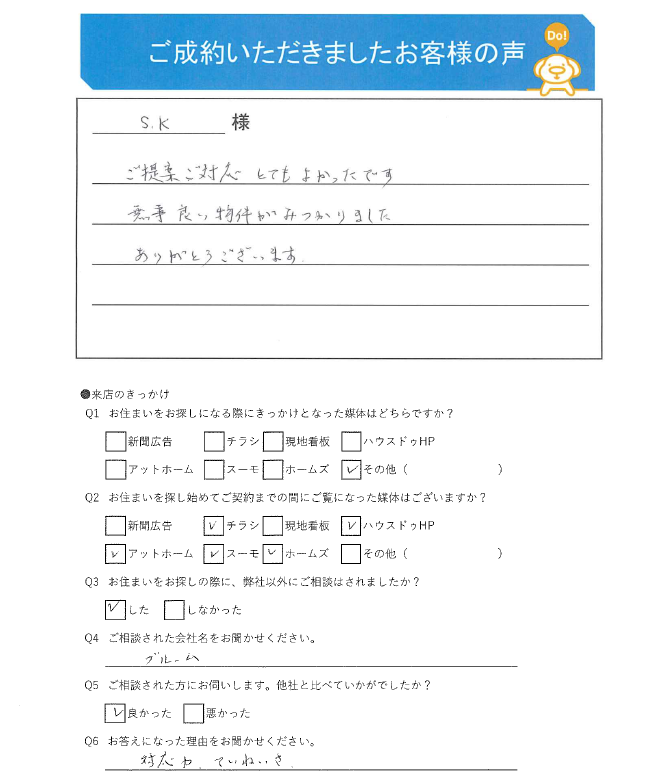 ご成約いただきましたお客様の声
Do!
S.K 様
ご提案ご対応 とてもよかったです
無事良い物件がみつかりました
ありがとうございます.
●来店のきっかけ
Q1 お住まいをお探しになる際にきっかけとなった媒体はどちらですか？
新聞広告 チラシ 現地看板 ハウスドゥHP
アットホーム スーモ ホームズ その他（ ）
Q2 お住まいを探し始めてご契約までの間にご覧になった媒体はございますか？
新聞広告 チラシ 現地看板 ハウスドゥHP
アットホーム スーモ ホームズ その他（ ）
Q3 お住まいをお探しの際に、弊社以外にご相談はされましたか？
した しなかった
Q4 ご相談された会社名をお聞かせください。
ブルーム
Q5 ご相談された方にお伺いします。他社と比べていかがでしたか？
良かった 悪かった
Q6 お答えになった理由をお聞かせください。
対応力、ていねいさ